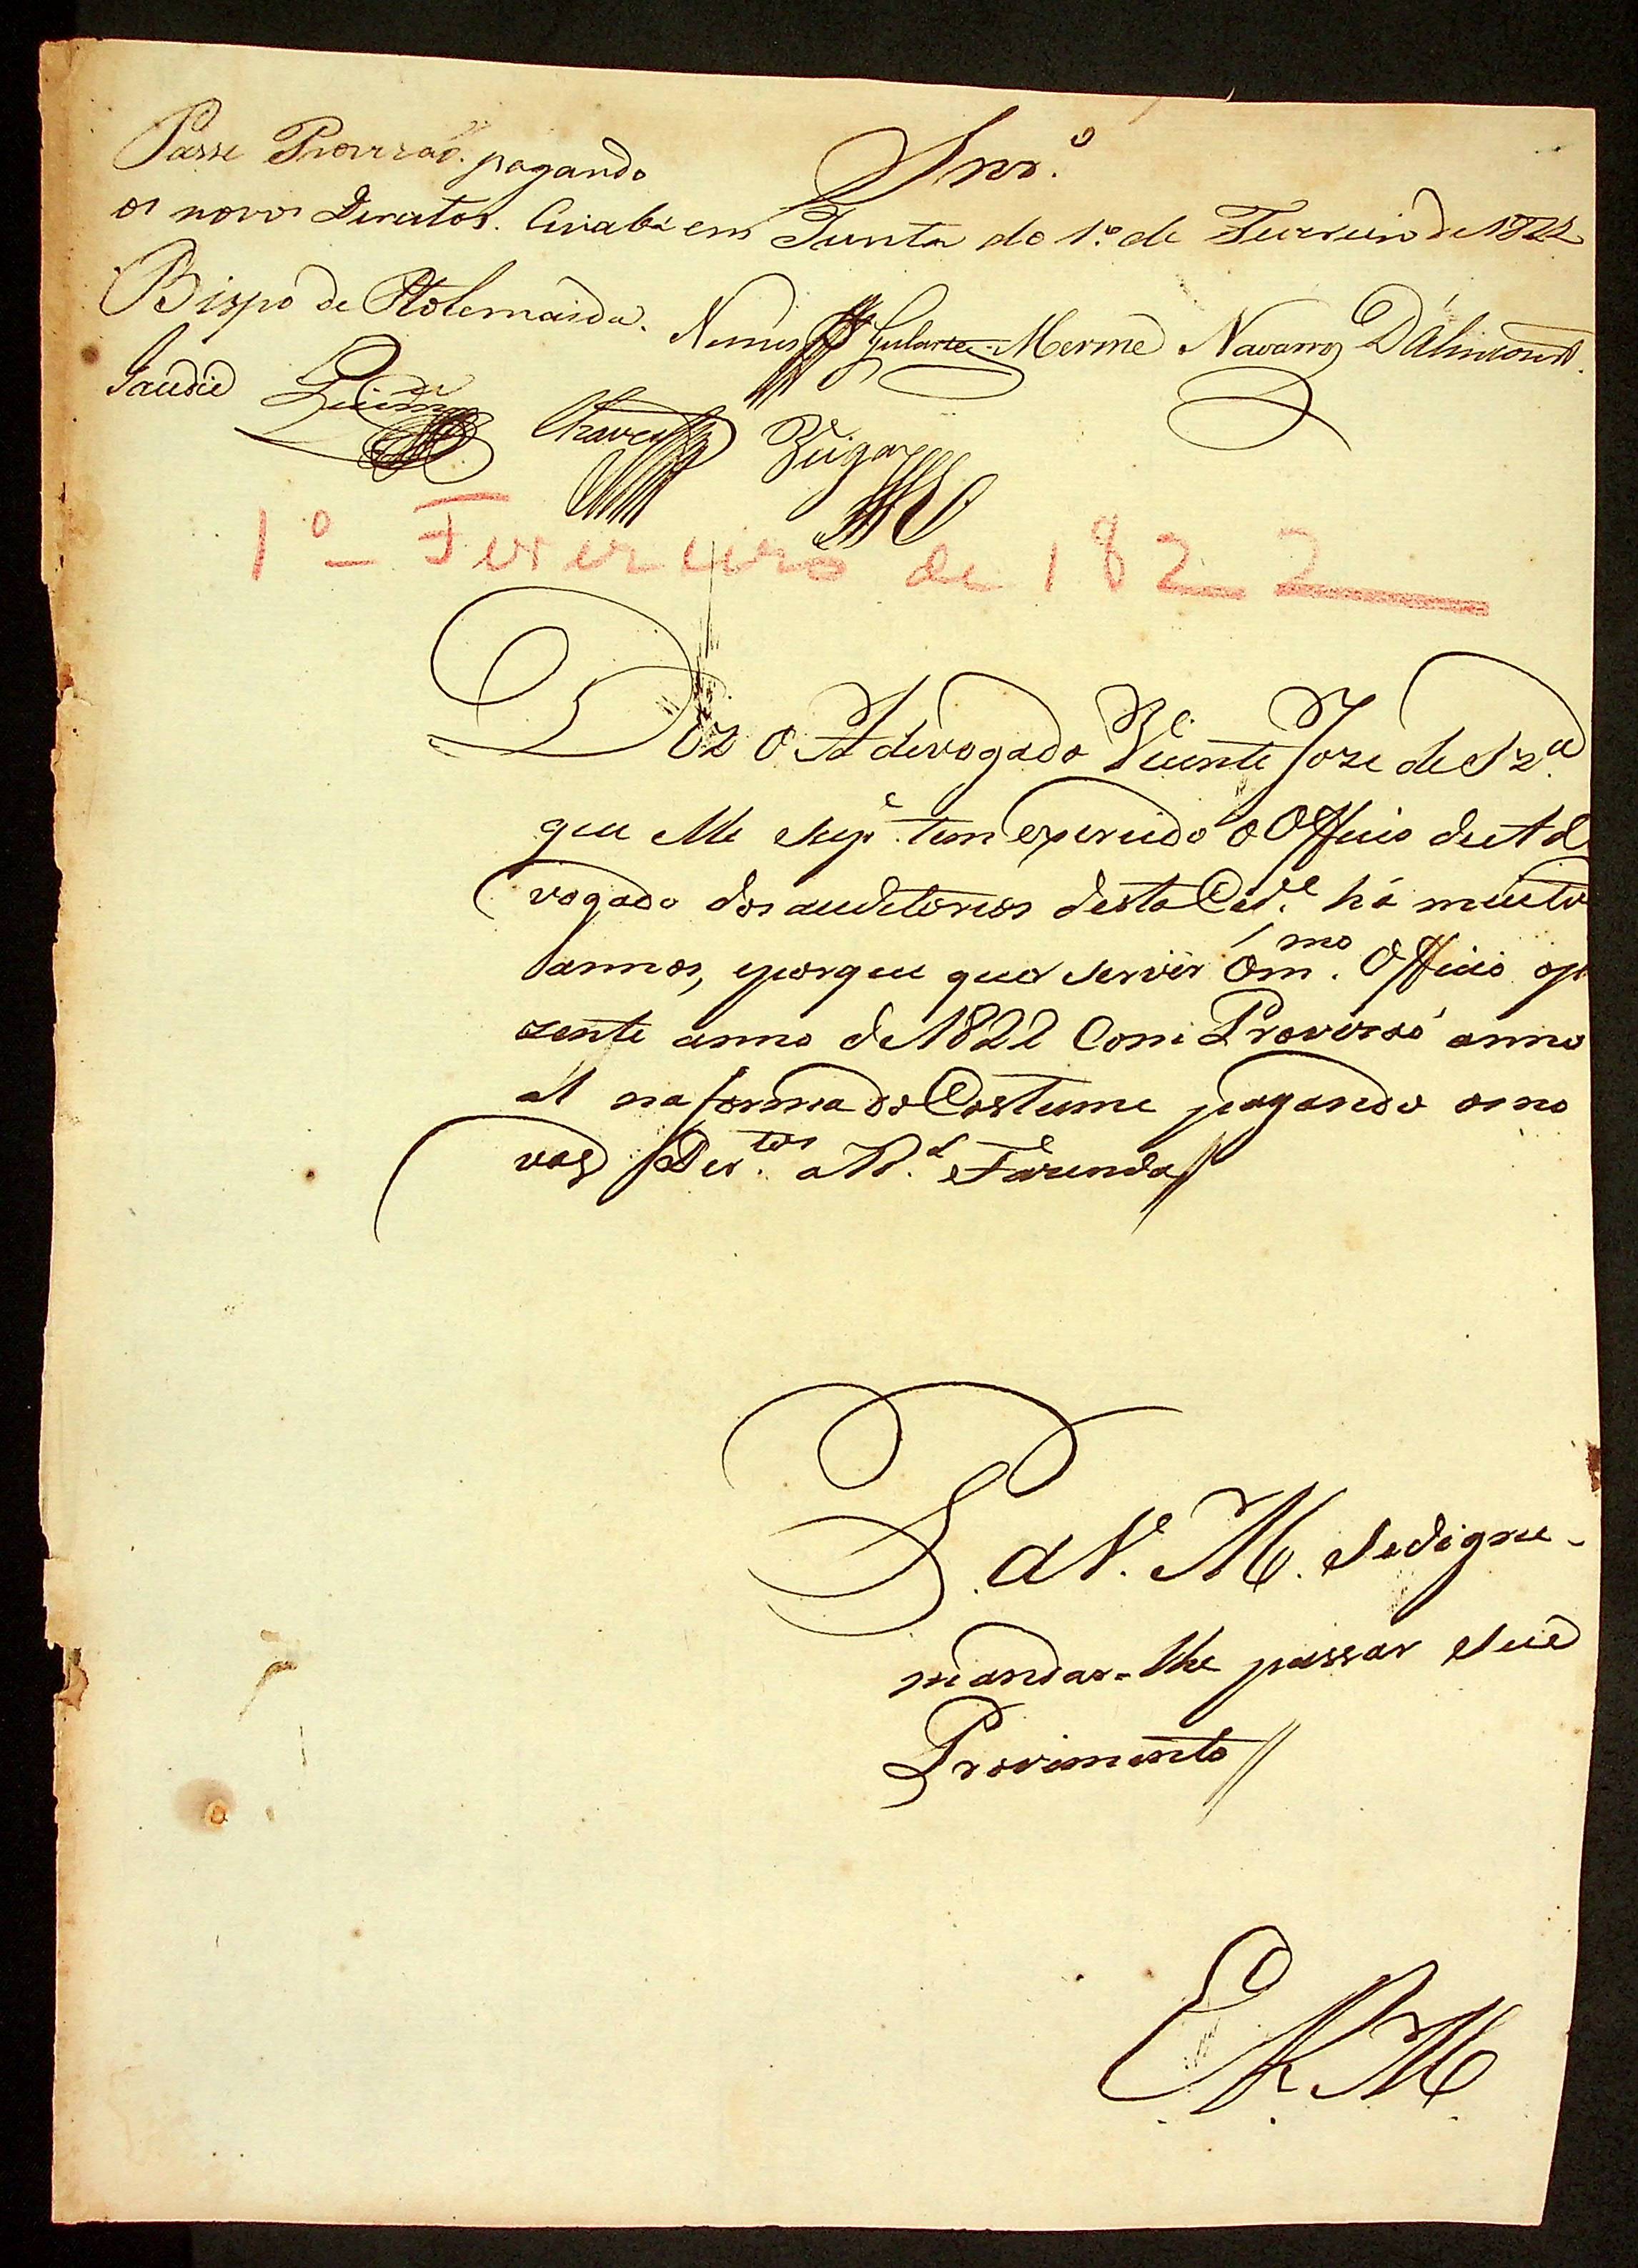 Snr.º
Passe Provizaõ. pagando
os novos Direitos. Cuiabá em Junta do 1.º de Fevereiro de 1822
Bispo de Ptolemaida. Nunes Gularte Merme Navarro D'Alincourt.
Jaudie Chaves Zuiga
1º - Fevereiro de 1822
Diz o Advogado Vicente Joze de Sz.ª
que elle sup.e tem exercido o Officio de Ad
vogado dos auditorios desta Cid.e há muito
annos, e porque quer servir o m.mo Officio o p
zente anno de 1822 com Provizaó annu
al na forma do Costume pagando os no
vos Dir.tos a R.l Fazenda//
P. a V. M. se digne -
mandar-lhe passar seu
Provimento//
E. R. M.